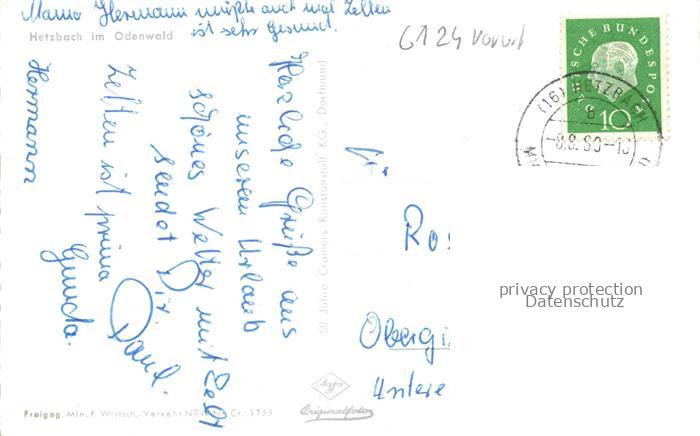 Mama Hermann müßte auch mal Zelten
ist sehr gesund.
Hetzbach im Odenwald
6124 Vorort
DEUTSCHE BUNDESPOST
10
(16) HETZBACH
8.8.60-18
Herzliche Grüße aus
unserem Urlaub
schönes Wetter mit Zelt
sendet Dir
Paul.
Zelten ist prima
Gunda.
Hermann
50 Jahre Cramers Kunstanstalt KG., Dortmund
Fr.
Ro
Obergi
Untere
privacy protection
Datenschutz
Agfa
Originalfoto
Freigeg. Min. f. Wirtsch.-Verkehr NRW Cr. 1133